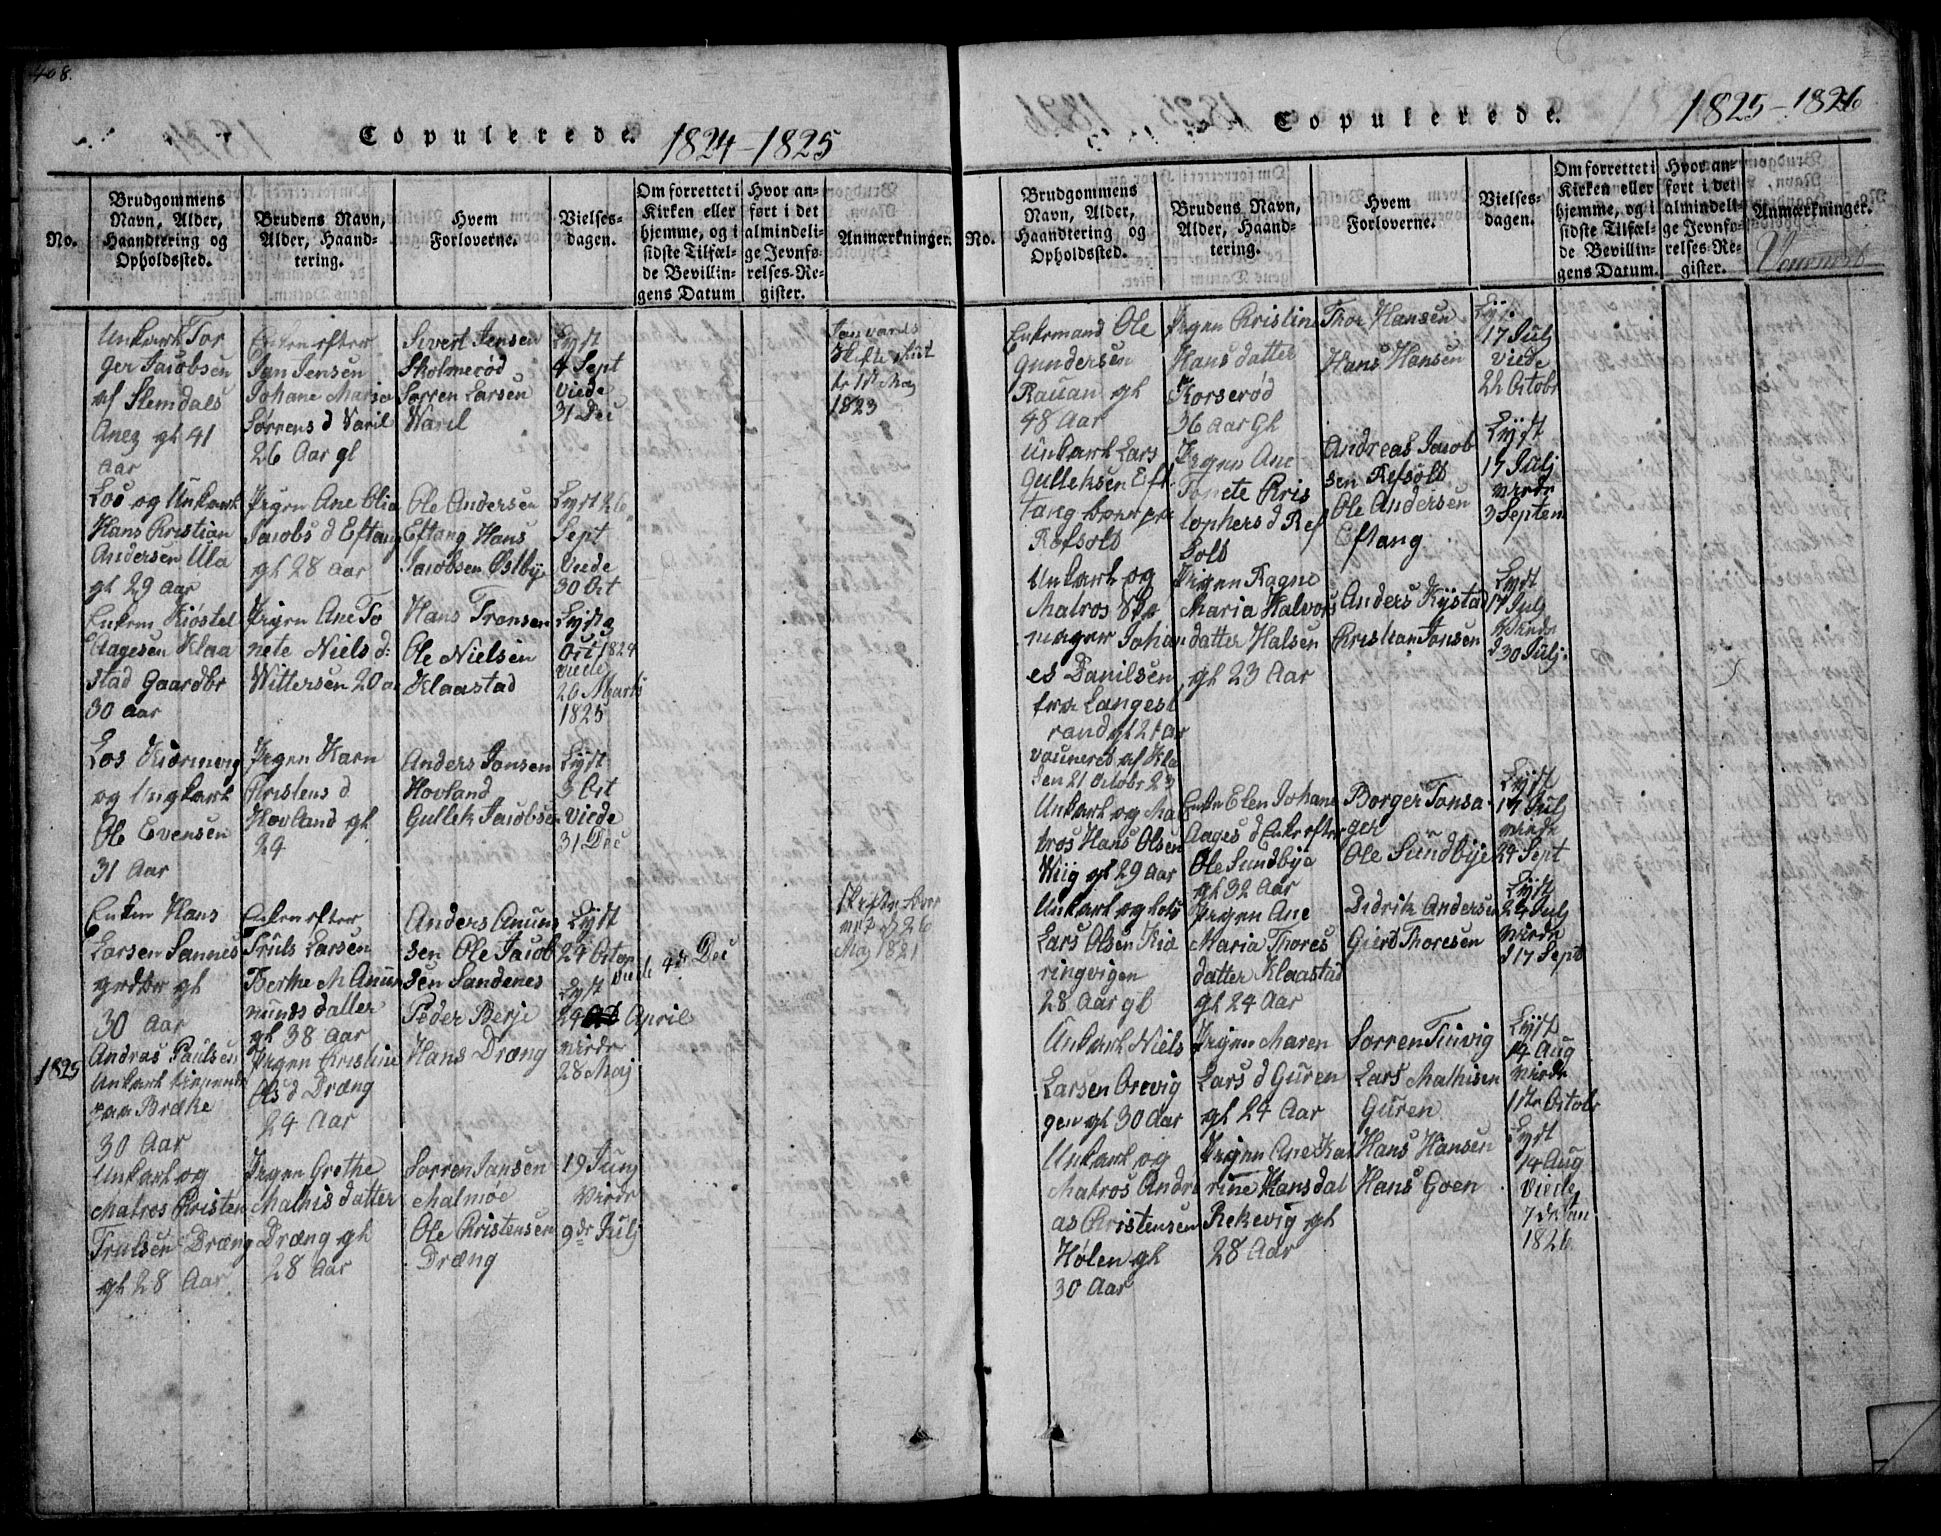 408.
Copulerede. 1824-1825
No.
Brudgommens Navn, Alder, Haandtering og Opholdssted.
Brudens Navn, Alder, Haandtering.
Hvem Forloverne.
Vielses-dagen.
Om forrettet i Kirken eller hjemme, og i sidste Tilfælde Bevillingens Datum
Hvor anført i det almindelige Jevnførelses-Register.
Anmærkninger.
Unkarl Tor
ger Jacobsen
af Slemdals
Anez gl 41
Aar
Enken efter
Jan Jensen
Johane Maria
Sørrens d Varil
26 Aar gl
Sivert Jensen
Skolmerød
Sorren Larsen
Waril
Lyst
4 Sept
Viede
31 Dec
1823
Los og Unkarl
Hans Kristian
Andersen Ula
gl 29 aar
Pigen Ane Olia
Jacobs d Eftang
gl 28 aar
Ole Andersen
Eftang Hans
Jacobsen Østbye
Lyst 26
Sept
Viede
30 Oct
Enkem Kiøstel
Aagesen Klaa
stad Gaardbr
30 aar
Pigen Ane To
nete Niels d:
Wittersen 20 a
Hans Transen
Ole Nielsen
Klaastad
Lyst 9
Oct 1824
Viede
26 Marts
1825
Los Kiørnvig
og Ungkarl
Ole Evensen
31 Aar
Pigen Karn
Kristens d
Hovland gl
29
Anders Jansen
Hovland
Gullek Jacobsen
Lyst
3 Oct
Viede
31 Dec
Enkem Hans
Larsen Sannes
grdbr gl
30 aar
Enken efter
Truls Larsen
Berthe M Amun
nunds datter
gl 38 aar
Anders Amuns
sen Ole Jacob
sen Sandenes
Lyst
24 Octop
Viede 4dr Dec
Maj 1821
1825
Andras Paulsen
Unkarl
paa Bræke
30 Aar
Pigen Cristine
Ols d Dræng
24 Aar
Peder Berje
Hans Dræng
Lyst
24 April
virdr
28 Maj
Unkarl og
Matros Cristen
Trulsen Dræng
gl 28 Aar
Pigen Grethe
Mathis datter
Dræng gl
28 Aar
Sorren Jansen
Malmøe
Ole Christensen
Dræng
19 Juny
Virdr
9dr Julj
Copulerede. 1825-1826
No.
Brudgommens Navn, Alder, Haandtering og Opholdssted.
Brudens Navn, Alder, Haandtering.
Hvem Forloverne.
Vielses-dagen.
Om forrettet i Kirken eller hjemme, og i sidste Tilfælde Bevillingens Datum.
Hvor anført i det almindelige Jevnførelses-Register.
Anmærkninger.
Enkemand Ole
Gundersen
Rauan gl
48 Aar
Pigen Kristine
Hans datter
Korserød
36 aar Gl
Thor Hansen
Hans Hansen
Lyst
17 Julj
Viede
22 Octobr
Unkarl Lars
Gulleksen Eft
tang barn paa
Refsolt
Pigen Ane
Tonete Kris
tophers d Ref
Solt
Andreas Jacob
sen Refsolt
Ole Andersen
Eftang
Lyst
17 Julj
virdr
3 Septem
Unkarl og
Matros Sko
mager Johan
es Danilsen
fra Langest
rand gl 21 ar
vauneret af Kla
sen 21 Octobr 23
Pigen Ragne
Maria Halvors
datter Halsen
gl 23 Aar
Anders Kystad
Christian Jonsen
Lyst
17 Julj
30 Julj
Unkarl og Ma
tros Hans Olsen
Wiig gl 29 aar
Enken Elen Johane
Aages d Enke efter
Ole Sundbye
gl 32 Aar
Borger Tonsa
ger
Ole Sundbye
Lyst
17 Julj
virdr
24 Sept
Unkarl og Lots
Lars Olsen Kiæ
ringvigen
28 Aar gl
Pigen Ane
Maria Thores
datter Klaastad
gl 24 Aar
Didrik Andersen
Giert Thoresen
Lyst
24 Julj
virdr
17 Sept
Unkarl Niels
Larsen Orevig
gen gl 30 Aar
Pigen Maren
Lars d Guren
gl 24 Aar
Sorren Tinvig
Lars Mathisen
Guren
Lyst
14 Aug
virdr
1str Octobr
Unkarl og
Matros Andre
as Christensen
Hølen gl
30 Aar
Pigen Ane Kat
rine Hans dat
Rekevig gl
28 Aar
Hans Hansen
Hans Goen
Lyst
14 Aug
Viede
7 dr Jan
1826